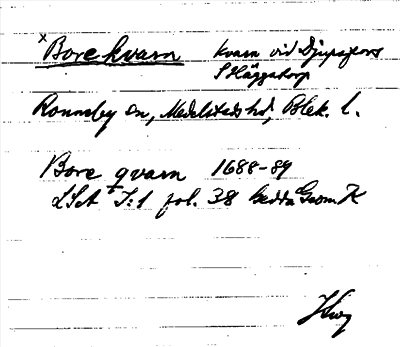 x Bore kvarn kvarn vid Djupafors
S Häggatorp
Ronneby sn, Medelstads hd, Blek. l.
Bore qvarn 1688-89
LSA I:1 fol. 38